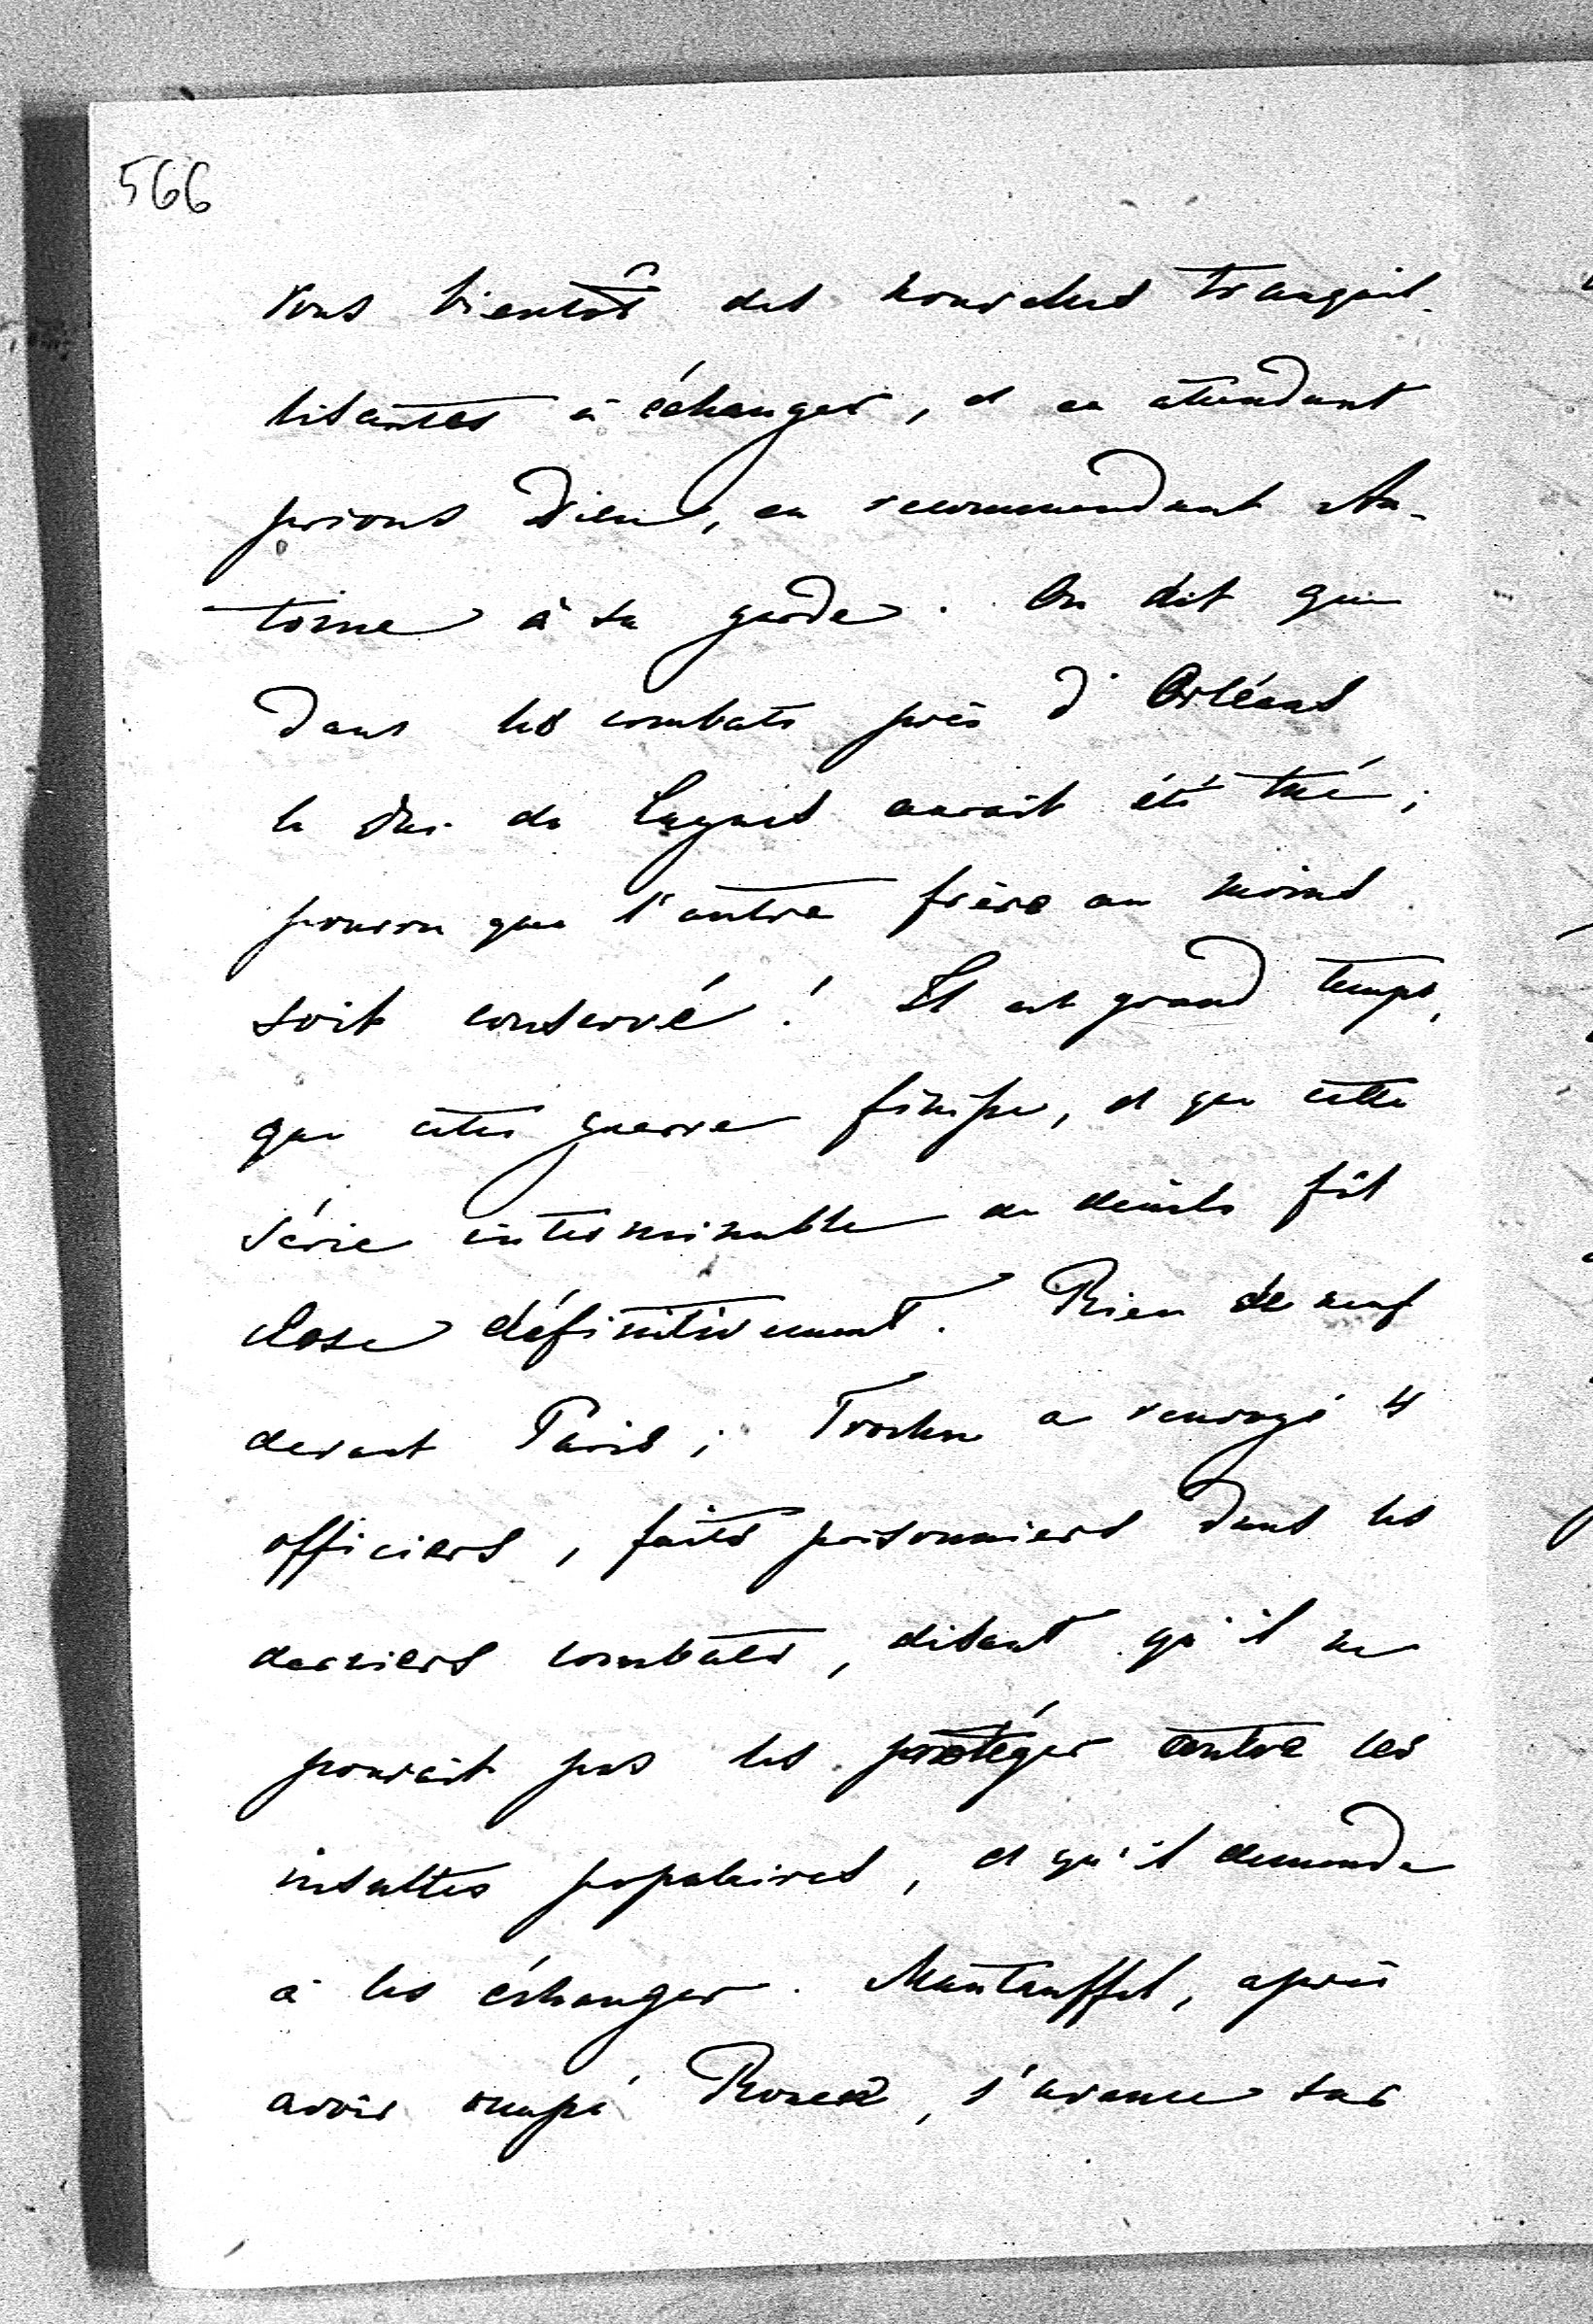 566
vons bientôt des nouvelles tranquil-
lisantes à échanger, et en attendant
prions Dieu, en recommandant An-
toine à sa garde. On dit que
dans les combats près d'Orléans
le Duc de Luynes aurait été tué;
pourvu que l'autre frère au moins
soit conservé! Il est grand temps,
que cette guerre finisse, et que cette
série interminable de deuils fût
close définitivement. Rien de neuf
devant Paris; Trochu a renvoyé 4
officiers, faits prisonniers dans les
derniers combats, disant qu'il ne
pouvait pas les protéger contre les
insultes populaires, et qu'il demande
à les échanger. Mantauffel, après
avoir occupé Rouen, s'avance sur